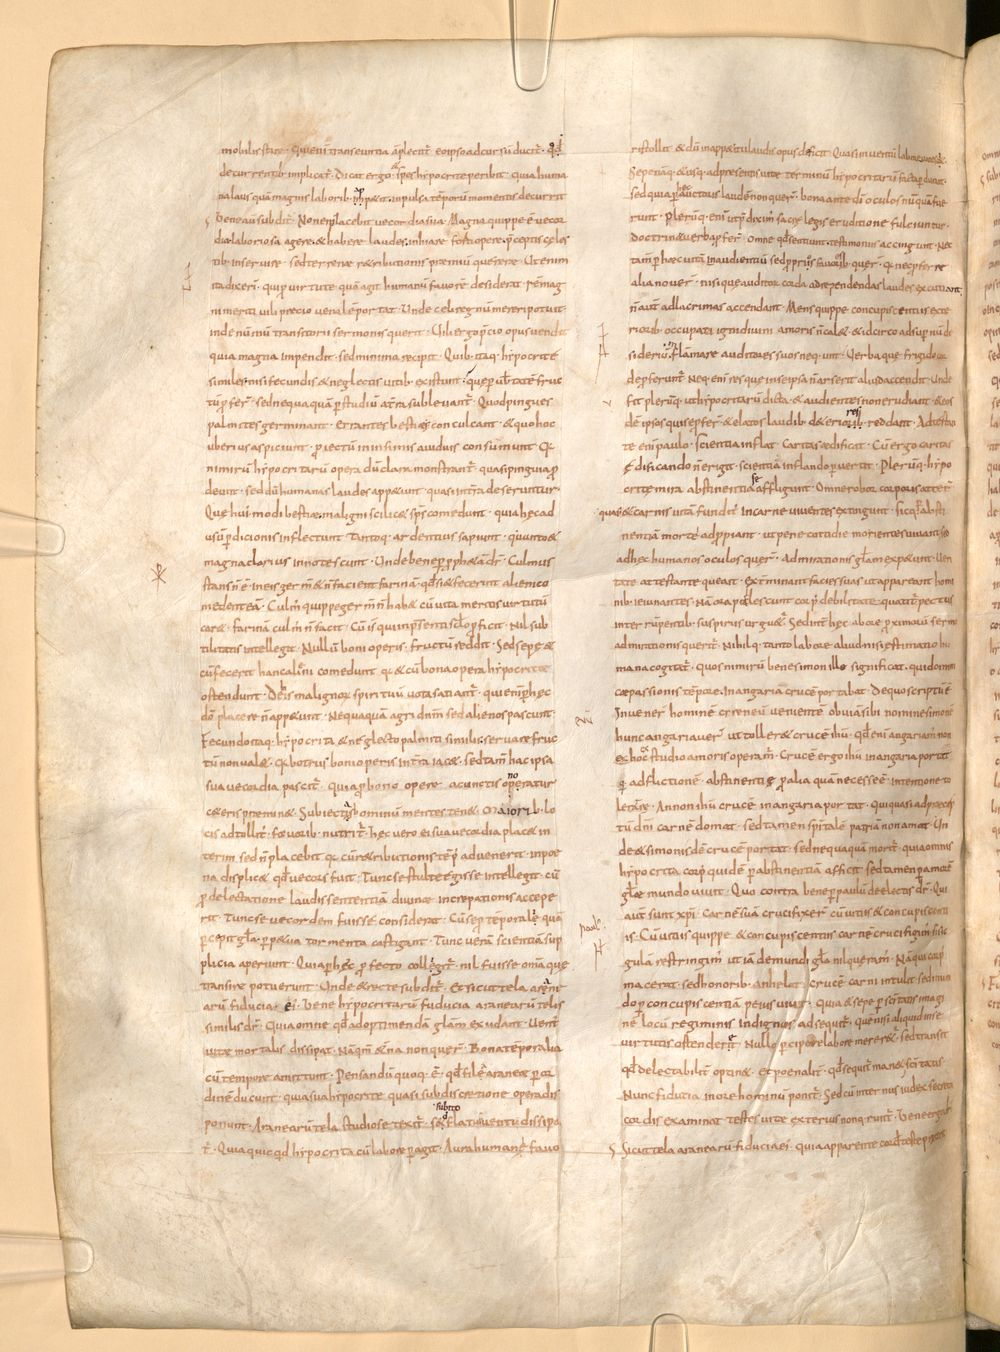 mobilis stare. Qui enī transeuntia āplectit᷑ eo ipso ad cursū ducit᷑. qd̄
decurrendo implicat᷑. Dicat ergo. & spes hipocritę peribit. quia huma
na laus quā magnis laborib; appetit. inpulsa tēporū momentis decurrit
Bene aūt subdit᷑. Non ei placebit uecordia sua. Magna quippe ē uecor
dia laboriosa agere. & habere laudes inhiare. forti opere p̄ceptis cęles
tib; inseruire. sed terrenę retributionis premiū querere. Ut enim
ita dixerī. qui p uirtute quā agit humanū fauorē desiderat. rē mag
ni meriti uili precio uenalē portat. Unde celi regnū mereri potuit
inde nūmū transitorii sermonis querit. Vili ergo p̄cio opus uendit
quia magna impendit. sed minima recipit. Quib; itaq; hipocritę
similes nisi fecundis & neglectis uitib; existunt. que p ubtatē fruc
tū pfer᷑. sed nequaquā p studiū a t͛ra subleuant᷑. Quod pingues
palmites germinant. Errantes bestię conculcant. & quo hoc
uberius aspiciunt. piectū in infimis auidius consumunt. Qa
nimirū hipocritarū opera dū clara monstrant᷑. quasi pinguia p
deunt. sed dū humanas laudes appetunt. quasi in t͛ra deseruntur.
Que hui᷒ modi bestiæ. maligni scilic& sp̄s comedunt. quia hęc ad
usū pdicionis inflectunt. Tantoq; ardentius rapiunt. quanto &
magna clarius innotescunt. Unde bene p pph̄aā dr̄. Culmus
stans n̄ ē in eis germ̄ & n̄ facient farinā. qd̄ si & fecerint alieni co
medent eā. Culm᷒ quippe germ̄ n̄ hab& cū uita meritis uirtutū
car&. farinā culm᷒ n̄ facit. Cū is qui in p̄senti sc̄lo pficit. Nil sub
tilitatis intellegit. Nullū boni operis. fructū reddit. Sed sępe &
cū fecerit hanc alieni comedunt. qa & cū bona opera hipocritę
ostendunt. De eis malignoꝝ spirituū uota satiant᷑. qui enī p hęc
dō placere n̄ appetunt. Nequaquā agri dnm̄ sed alienos pascunt.
Fecundo itaq; hipocrita & neglecto palmiti similis. seruare fruc
tū non ual&. Qa botrus boni operis in t͛ra iac&. sed tam̄ hac ipsa
sua uecordia pascit᷑. Quia p bono opere a cunctis honoratur
cæteris preminet. Subiectas hominū mentes ten&. Maiorib; lo
cis adtollit᷑. fauorib; nutrit᷑. hęc uero ei sua uecordia plac& in
terim sed n̄ placebit qa cū retributionis tēp᷒ aduenerit. in pœ
na displic& qd̄ uecors fuit. Tunc se stulte egisse intellegit. cū
p delectatione laudis sententiā diuinæ increpationis accepe
rit. Tunc se uecordem fuisse considerat. Cū se p teporalē quā
pcepit gla᷑. ppetua tormenta castigant. Tunc uerā scientiā sup
plicia aperiunt. Quia p hęc pfecto colligit᷑. nil fuisse om̄a quę
transire potuerunt. Unde & recte subdit᷑. Et sicut tela arane
arū fiducia ei᷒. Bene hipocritarū fiducia aranearū telis
similis dr̄. Quia omne qd̄ ad optinendā glām exudant. Uent᷒
uitæ mortalis dissipat. Nāq̄m ętna non quer᷑. Bona tēporalia
cū tempore amittunt. Pensandū quoq; ē. qd̄ fila araneæ p or
dinē ducunt. quia sua hipocritę quasi sub discretione operā dis
ponunt. Aranearū tela studiose texit᷑. sed subito flatu uenti dissipa
t᷑. Quia quicqd hipocrita cū labore pagit. Aura humani fauo
ris tollit. & dū in app&itu laudis opus deficit. Quasi in uentū labor euanescit.
Sępe naq; & usq; ad presentis uitæ terminū hipocritarū facta p durant.
sed quia p hęc auctoris laudē non quer᷑. bona ante dī oculos nūquā fue
runt. Plerūq; enī ut p̄dixim᷒ sacrę legis eruditione fulciuntur.
doctrinæ uerba pfer᷑. Omne qd̄ sentiunt testimoniis accingunt. Nec
tam̄ p hæc uitā in audientiū sed ppriis fauorib; quer᷑. Qa nec pferre
alia nouer᷑. nisi que auditoꝝ corda ad rependendas laudes excutiant.
n̄ aūt ad lacrimas accendant. Mens quippe concupiscentiis exte
riorib; occupata igni diuini amoris n̄ cal&. & idcirco ad supnū de
sideriū inflāmare auditores suos neq;unt. Uerba que frigido corde
depferunt᷑. Neq; enī res que in se ipsa n̄ arserit aliud accendit. Unde
fit plerūq; ut hipocritarū dicta & audientes non erudiant. & eos
dē ipsos qui se pfer᷑ & elatos laudib; deteriorib; reddant. Adtestan
te enī paulo. Scientia inflat. Caritas ædificat. Cū ergo caritas
Ędificando n̄ erigit. scientia inflando puertit. Plerūq; hipo
critę mira abstinentia se affligunt. Omne robor corporis atter᷑.
quasi & carnis uitā fundit᷑. in carne uiuentes extingunt. sicq; p absti
nentiā mortē adppiant. ut pene cotidie morientes uiuant. sed
ad hęc humanos oculos quer᷑. Admirationis glām exp&unt. Ueri
tate attestante que ait. Exterminant facies suas ut appareant homi
nib; ieiunantes. Nā ora pallescunt corp᷒ debilitate quatit᷑. pectus
interrūpentib; suspiriis urgu&. Sed int͛ hęc ab ore pximorū sermo
admirationis querit᷑. Nihilq; tanto labore aliud nisi estimatio hu
mana cogitat᷑. Quos nimirū bene simon ille significat. qui domini
cæ passionis tēpore. In angaria crucē portabat. De quo scriptū ē
Inuener᷑ hominē cireneū uenientē obuiā sibi nomine simonē
hunc angariauer᷑ ut toller& crucē ihū. Qd̄ enī angariam non
ex hoc studio amoris operam᷑. Crucē ergo ihū in angaria portat
ē adflictionē. abstinentię p alia quā necesse ē intentione to
lerare. An non ihū crucē in angaria portat. Qui quasi ad p̄cep
tū dn̄i carnē domat. sed tamen spiritalē patriā non amat. Un
de & simon isdē crucē portat. sed nequaquā morit᷑. quia omnis
hipocrita corp᷒ quidē p abstinentiā afficit sed tamen p amorē
glæ mundo uiuit. Quo contra bene p paulū de electis dr̄. Qui
aūt sunt xp̄i. Carnē suā crucifixer᷑ cū uitiis & concupiscenti
is. Cū uitiis quippe & concupiscentiis carnē crucifigim᷒ si sic
gulā restringim᷒ ut iā de mundi gla᷑ nil queram᷒. Nā qui corp᷒
macerat. sed honorib; anhelat. crucē carni intulit sed mun
do p concupiscentiā peius uiuit. Quia & sępe p sc̄itatis imagi
nē locū regiminis indignus adsequit᷑. que nisi aliquid in se
uirtutis ostender&. Nullo pcipere labore merer&. sed transit
qd̄ delectabilit͛ optin&. Et poenalit͛. qd̄ sequit᷑ man&. sc̄itatis
nunc fiducia in ore hominū ponit᷑. Sed cū internus iudex secreta
cordis examinat testes uitæ exterius non qrunt᷑. Bene ergo dr̄.
Sicut tela aranearū fiducia ei᷒. quia apparente cordis teste p̄terit